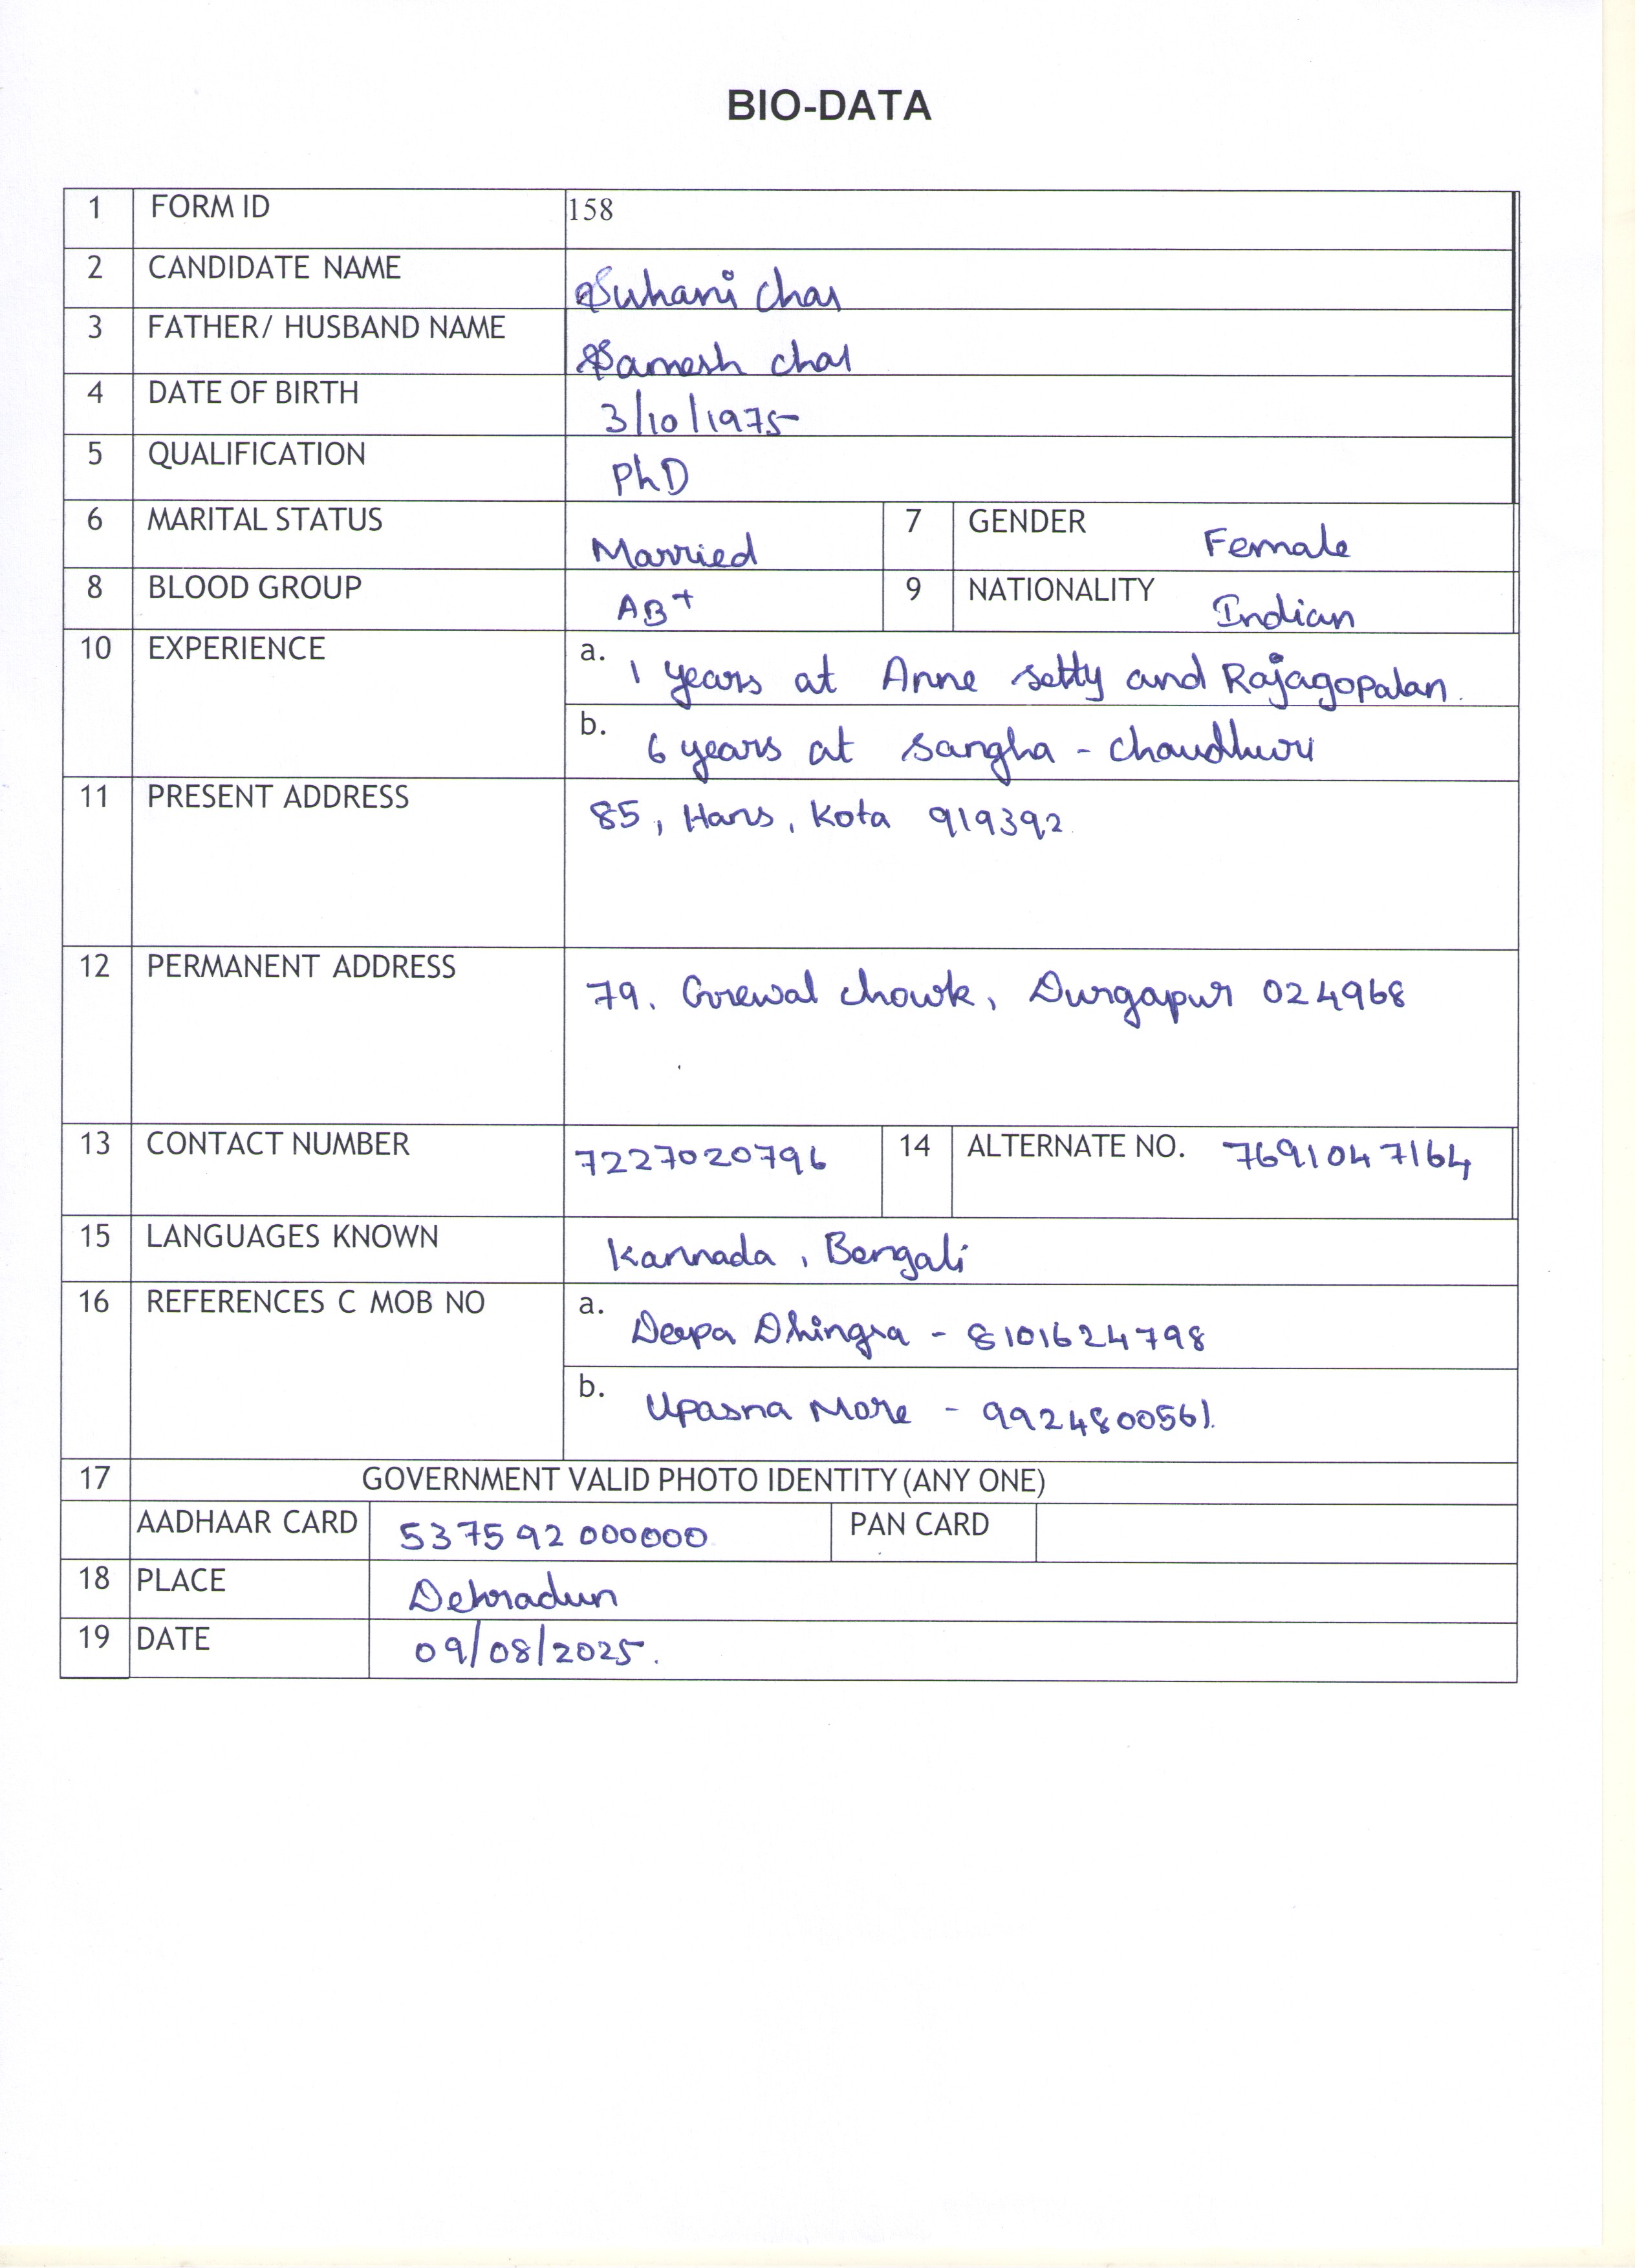 BIO-DATA
1 FORM ID 158
2 CANDIDATE NAME Suhani Char
3 FATHER/ HUSBAND NAME Samesh Char
4 DATE OF BIRTH 3/10/1975
5 QUALIFICATION PhD
6 MARITAL STATUS Married 7 GENDER Female
8 BLOOD GROUP AB+ 9 NATIONALITY Indian
10 EXPERIENCE a. 1 years at Anne setty and Rajagopalan.
b. 6 years at Sangha - Chaudhuri
11 PRESENT ADDRESS 85, Hans, Kota 919392
12 PERMANENT ADDRESS 79. Grewal chowk, Durgapur 024968
13 CONTACT NUMBER 7227020796 14 ALTERNATE NO. 7691047164
15 LANGUAGES KNOWN Kannada, Bengali
16 REFERENCES C MOB NO a. Deepa Dhingra - 8101624798
b. Upasna More - 9924800561.
17 GOVERNMENT VALID PHOTO IDENTITY (ANY ONE)
AADHAAR CARD 537592000000 PAN CARD
18 PLACE Dehradun
19 DATE 09/08/2025.